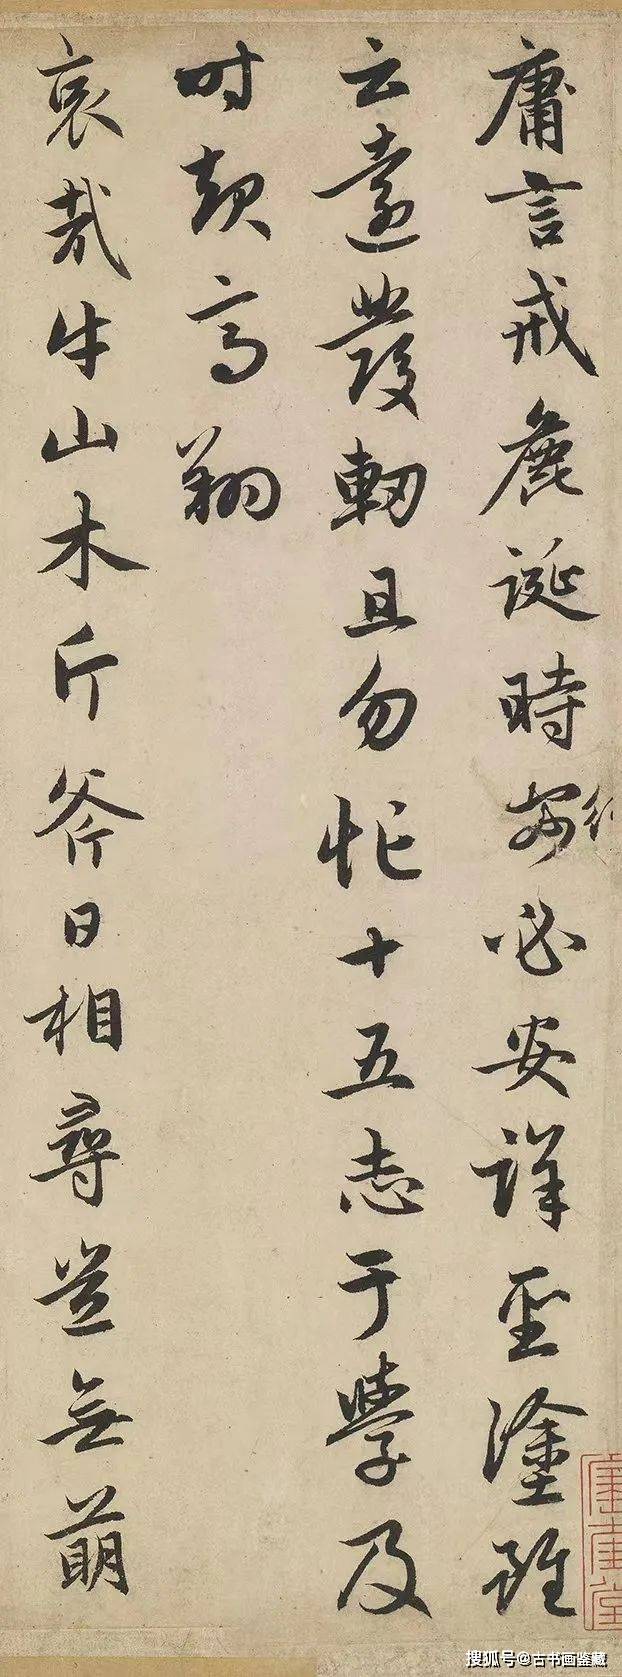 庸言戒麄誕時行必安詳聖塗雖
云遠發軔且勿忙十五志于學及
时起高翔
哀哉牛山木斤斧日相尋豈無萌
搜狐号@古书画鉴藏